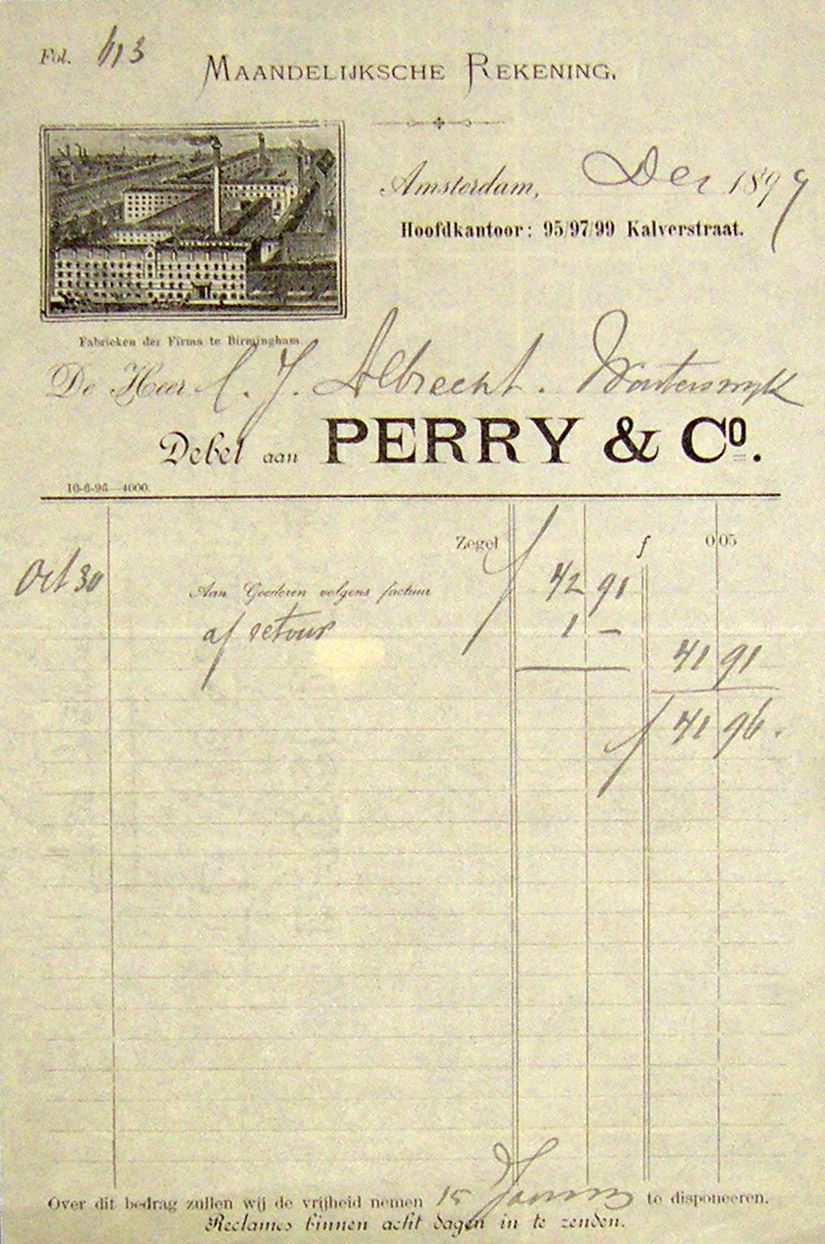 Fol. 113
MAANDELIJKSCHE REKENING.
Amsterdam, Dec 1897
Hoofdkantoor: 95/97/99 Kalverstraat.
Fabrieken der Firma te Birmingham
De Heer C. J. Albrecht.
Debet aan PERRY & Co.
10-6-96—4000.
Zegel f 0 05
Oct 30 Aan Goederen volgens factuur f 42 91
af retour 1 —
41 91
f 41 96.
Over dit bedrag zullen wij de vrijheid nemen 15 te disponeeren.
Reclames binnen acht dagen in te zenden.